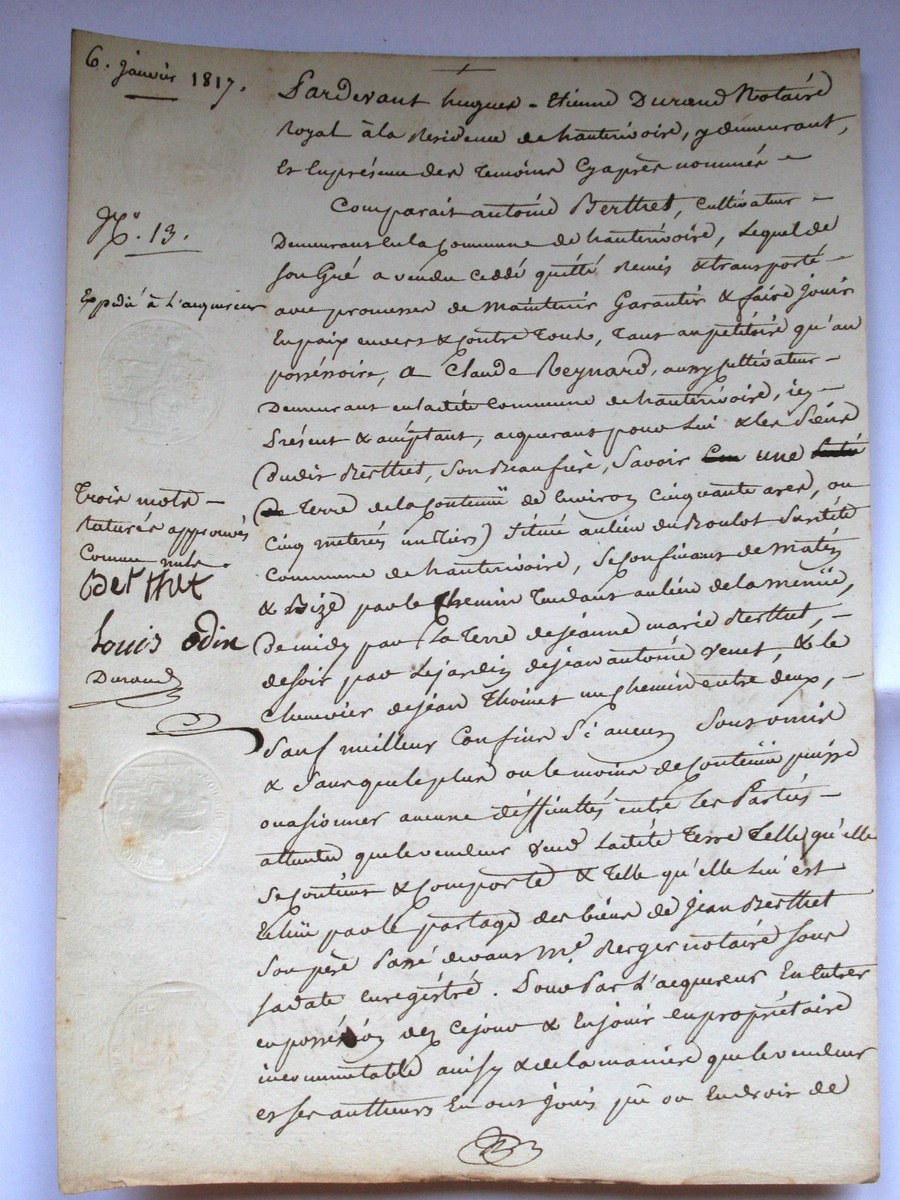 6. janvier 1817.
N.o 13.
Expédié à l'acquereur
Trois mots
raturés approuvés
comme nuls.
Berthet
Louis Odin
Durand
Pardevant hugues-Etienne Durand Notaire
Royal à la Residence de hauterivoire, y demeurant,
et En présence des Temoins Cyaprès nommés
Comparait antoine Berthet, Cultivateur
Demeurant en la Commune de hauterivoire, Lequel de
son Gré a vendu Ceddé quitté Remis & transporté
avec promesses de Maintenir Garantir & faire Jouir
En paix envers & contre Tous, Tant au petitoire qu'au
possessoire, a Claude Reynard, aussy Cultivateur
Demeurant en ladite Commune de hauterivoire, icy
Présent & acceptant, acquerant pour Lui & les Siens
Dudit Berthet, son Beaufrère, Savoir une
Terre de la Contenuë de Environ Cinquante ares, ou
Cinq meterés un Tiers) Située au lieu du Boulot Susdite
Commune de hauterivoire, Se Confinant de matin
& Bize par le Chemin Tendant au lieu de la menüe,
de midy par La Terre de jeanne marie Berthet,
de soir par Le jardin de jean antoine Venet, & le
Chenevier de jean Thoinet un chemin entre deux,
Sauf meilleur Confins Si aucun Sont omis
& Sans que le plus ou le moins de Contenuë puisse
occasionner aucune difficultés entre les Parties
attendu que le vendeur Vend Ladite Terre Telle qu'elle
se Contient & Comporte & Telle qu'elle Lui est
Echüe par le partage des biens de jean Berthet
Son père Passé devant M.e Berger notaire sous
sa date enregistré. Pour Par L'acquereur En Entrer
en possession dez Ce jour & En jouir en propriétaire
incommutable ainsy & de la maniere que le vendeur
et ses autheurs En ont Joui pû ou En droit de